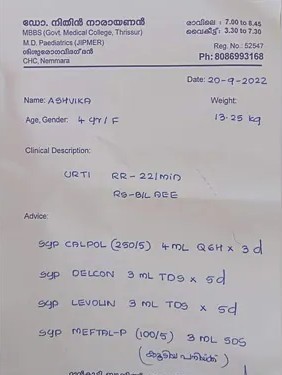 ഡോ. നിതിൻ നാരായണൻ
MBBS (Govt. Medical College, Thrissur)
M.D. Paediatrics (JIPMER)
ശിശുരോഗവിദഗ്ദ്ധൻ
CHC, Nemmara
രാവിലെ : 7.00 to 8.45
വൈകീട്ട്: 3.30 to 7.30
Reg. No.: 52547
Ph: 8086993168
Date: 20-9-2022
Name: ASHVIKA
Weight:
Age, Gender: 4 yr / F
13.25 kg
Clinical Description:
URTI RR - 22/min
RS - B/L AEE
Advice:
syp CALPOL (250/5) 4 ML Q6H x 3 d
syp DELCON 3 ML TDS x 5d
syp LEVOLIN 3 ML TDS x 5d
syp MEFTAL-P (100/5) 3 ML SOS